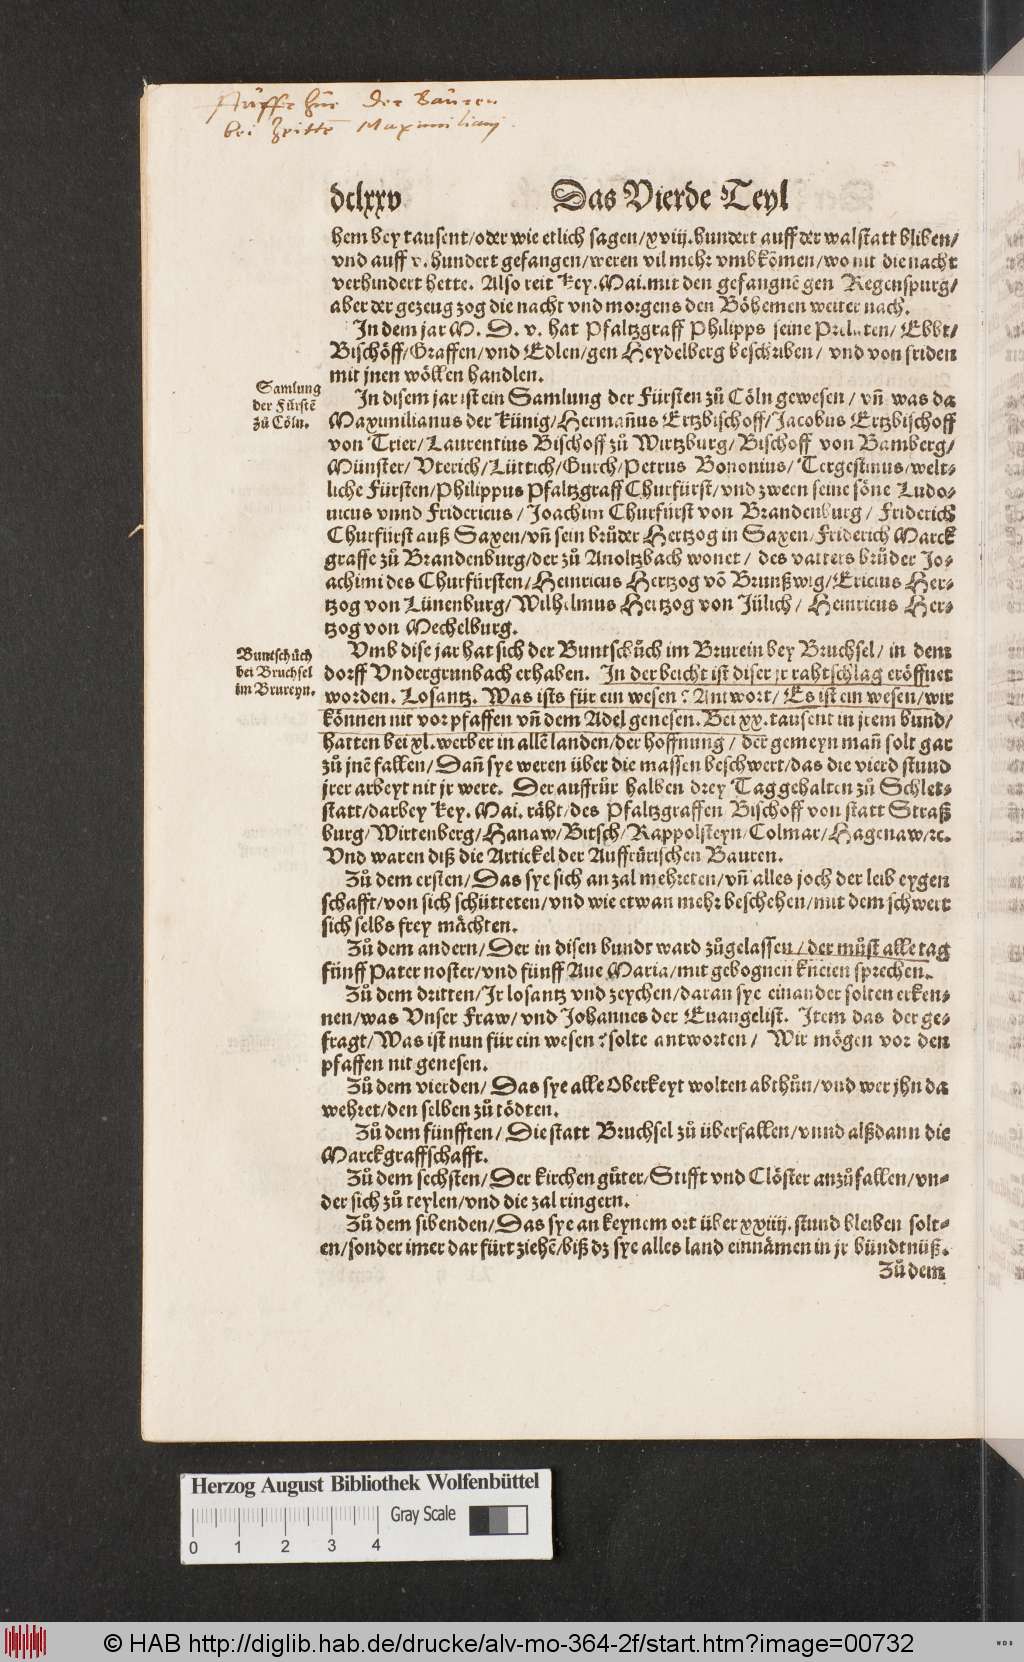 der Bauren
bei Zeitte Maximiliani.
dclxxv Das Vierde Teyl
hem bey tausent/oder wie etlich sagen/xviij.hundert auff der walstatt bliben/
vnd auff v.hundert gefangen/weren vil mehr vmbkōmen/wo nit die nacht
verhindert hette. Also reit Key.Mai.mit den gefangnē gen Regenspurg/
aber der gezeug zog die nacht vnd morgens den Böhemen weiter nach.
In dem jar M. D. v. hat Pfaltzgraff Philipps seine Prelaten/ Ebbt/
Bischöff/Graffen/vnd Edlen/gen Heydelberg beschriben/ vnd von friden
mit jnen wöllen handlen.
Samlung
der Fürstē
zů Cöln.
In disem jar ist ein Samlung der Fürsten zů Cöln gewesen / vñ was da
Maximilianus der Künig/Hermañus Ertzbischoff/Jacobus Ertzbischoff
von Trier/Laurentius Bischoff zů Wirtzburg/Bischoff von Bamberg/
Münster/Vterich/Lüttich/Gurch/Petrus Bononius/Tergestinus/welt-
liche Fürsten/Philippus Pfaltzgraff Churfürst/vnd zween seine söne Ludo-
uicus vnnd Fridericus / Joachim Churfürst von Brandenburg / Friderich
Churfürst auß Saxen/vñ sein brůder Hertzog in Saxen/Friderich Marck
graffe zů Brandenburg/der zů Anoltzbach wonet/ des vatters brůder Jo-
achimi des Churfürsten/Heinricus Hertzog vō Brunßwig/Ericus Her-
tzog von Lünenburg/Wilhelmus Hertzog von Jülich/ Heinricus Her-
tzog von Mechelburg.
Buntschůch
bei Bruchsel
im Brureyn.
Vmb dise jar hat sich der Buntschůch im Brurein bey Bruchsel/ in dem
dorff Vndergrunbach erhaben. In der beicht ist diser jr rahtschlag eröffnet
worden. Losantz. Was ists für ein wesen? Antwort/ Es ist ein wesen/wir
können nit vor pfaffen vñ dem Adel genesen. Bei xx.tausent in jrem bund/
hatten bei xl.werber in allē landen/der hoffnung / der gemeyn mañ solt gar
zů jnē fallen/ Dañ sye weren über die massen beschwert/das die vierd stund
jrer arbeyt nit jr were. Der auffrůr halben drey Tag gehalten zů Schlet-
statt/darbey Key. Mai. räht/des Pfaltzgraffen Bischoff von statt Straß
burg/Wirtenberg/Hanaw/Bitsch/Rappolsteyn/Colmar/Hagenaw/ꝛc.
Vnd waren diß die Artickel der Auffrürischen Bauren.
Zů dem ersten/Das sye sich an zal mehreten/vñ alles joch der leib eygen
schafft/von sich schütteten/vnd wie etwan mehr beschehen/mit dem schwert
sich selbs frey mächten.
Zů dem andern/Der in disen bundt ward zůgelassen/der můst alle tag
fünff Pater noster/vnd fünff Aue Maria/mit gebognen kneien sprechen.
Zů dem dritten/Ir losantz vnd zeychen/daran sye einander solten erken-
nen/was Vnser Fraw/vnd Johannes der Euangelist. Item das der ge-
fragt/Was ist nun für ein wesen? solte antworten/ Wir mögen vor den
pfaffen nit genesen.
Zů dem vierden/ Das sye alle Oberkeyt wolten abthůn/vnd wer jhn da
wehret/den selben zů tödten.
Zů dem fünfften/ Die statt Bruchsel zů überfallen/vnnd alßdann die
Marckgraffschafft.
Zů dem sechsten/Der kirchen gůter/Stifft vnd Clöster anzůfallen/vn-
der sich zů teylen/vnd die zal ringern.
Zů dem sibenden/Das sye an keynem ort über xxiiij.stund bleiben solt-
en/sonder imer dar fürt ziehē/biß dz sye alles land einnämen in jr bündtnüß.
Zů dem
Herzog August Bibliothek Wolfenbüttel
Gray Scale
0 1 2 3 4
© HAB http://diglib.hab.de/drucke/alv-mo-364-2f/start.htm?image=00732